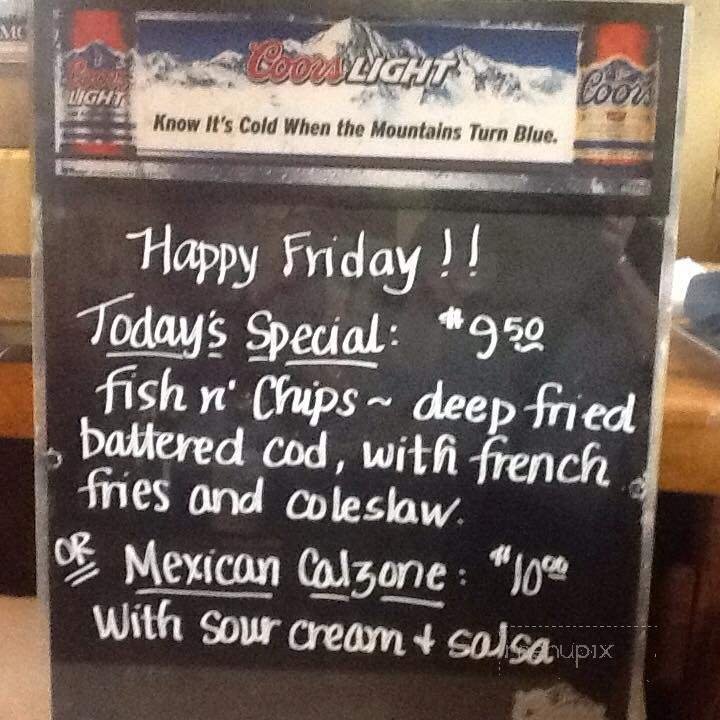 Coors LIGHT
Coors LIGHT
Coors
Know It's Cold When the Mountains Turn Blue.
Happy Friday!!
Today's Special: $9.50
fish n' Chips ~ deep fried
battered cod, with french
fries and coleslaw.
OR Mexican Calzone: $10.00
With sour cream + salsa
menupix